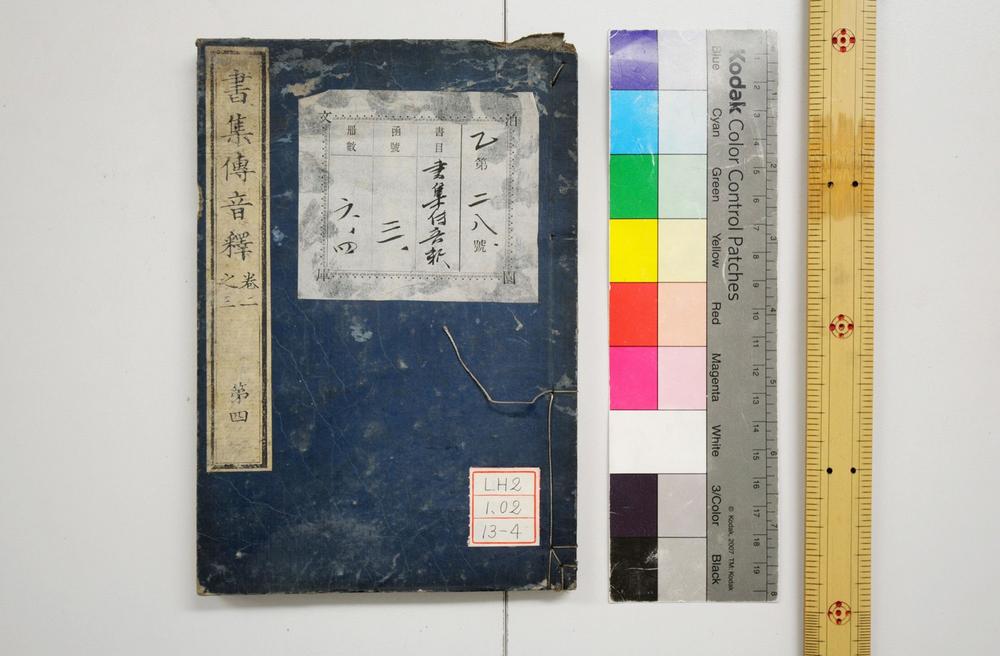 書集傳音釋 卷二之三 第四
文泊
庫園
乙第二八號
書目 書集付音釈
函號 三、
册數 六、四
LH2
1.02
13-4
Kodak Color Control Patches
Blue
Cyan
Green
Yellow
Red
Magenta
White
3/Color
Black
© Kodak, 2007 TM: Kodak
1 2 3 4 5 6 7 8 9 10 11 12 13 14 15 16 17 18 19
1 2 3 4 5 6 7 8